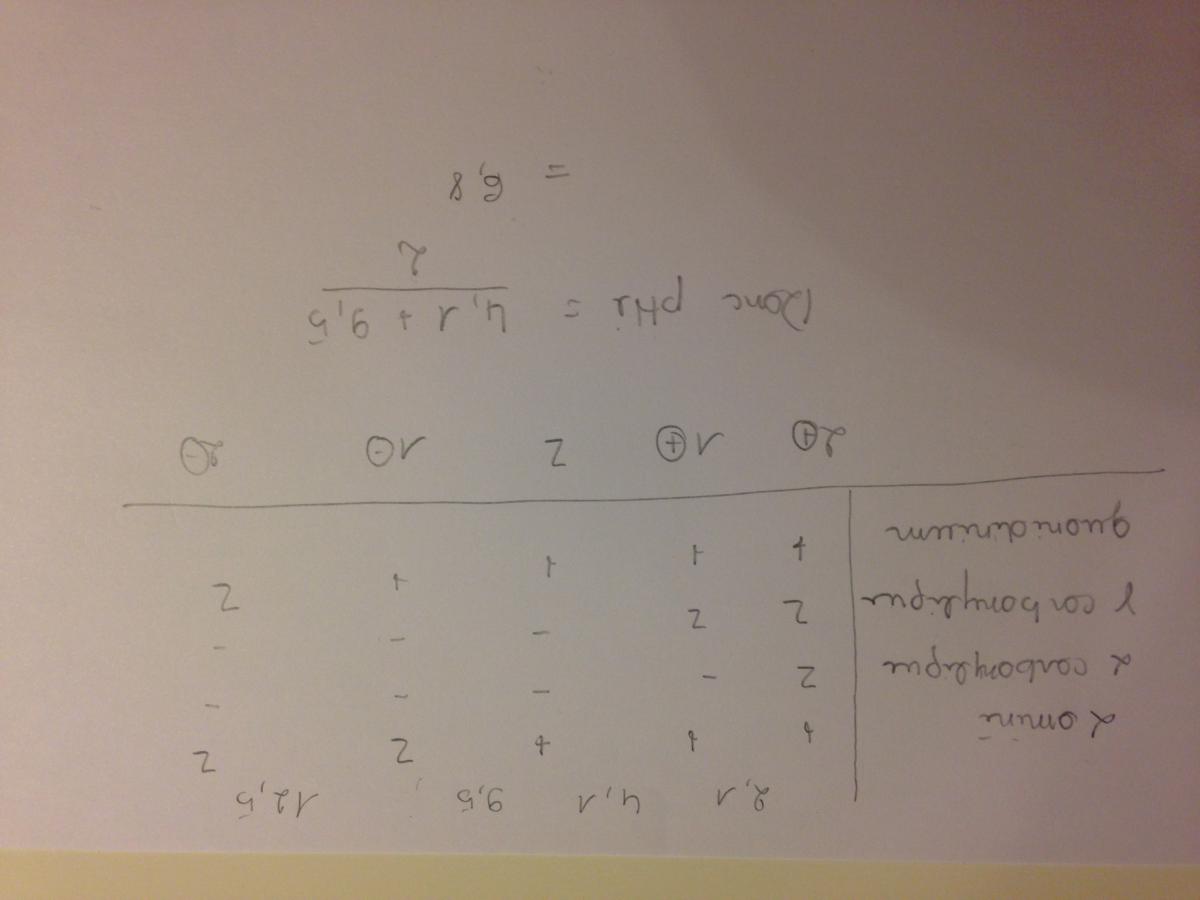 2,1 4,1 9,5 12,5
α aminé + + + Z Z
α carboxylique Z - - - -
γ carboxylique Z Z - - -
guanidinium + + + + Z
2⊕ 1⊕ Z 1⊖ 2⊖
Donc pHi = 4,1 + 9,5
2
= 6,8